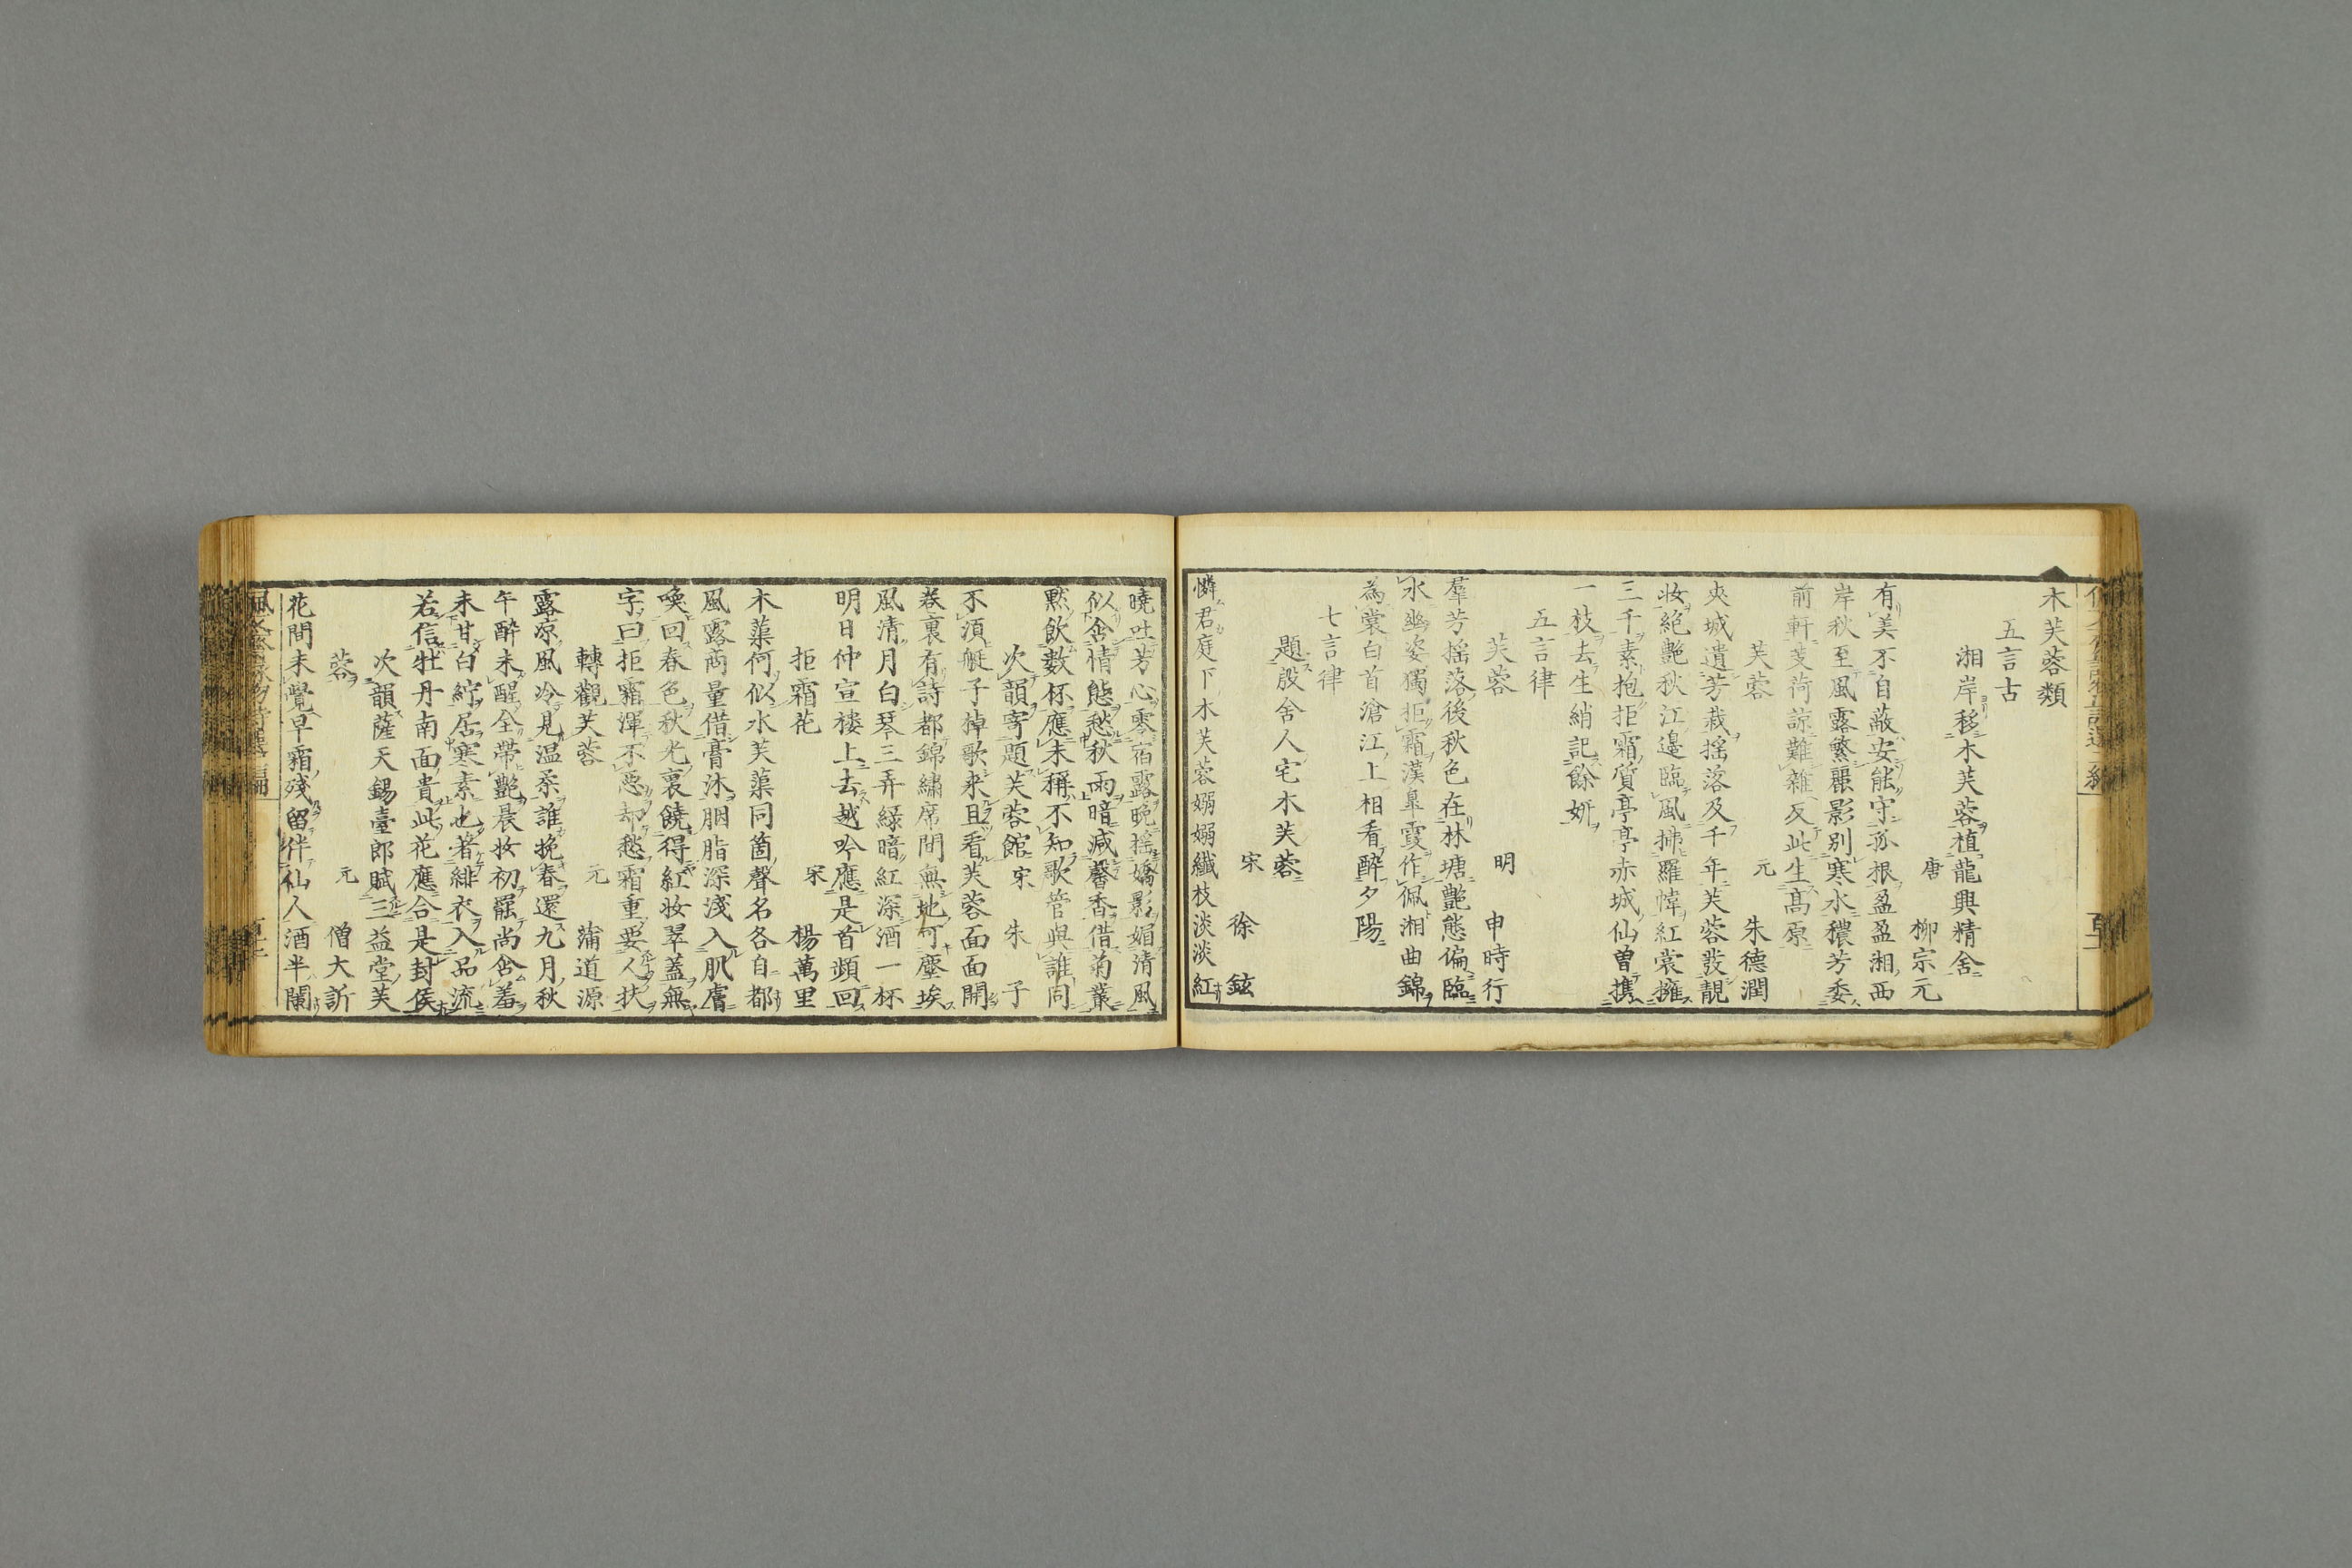 木芙蓉類
五言古
湘岸移木芙蓉植龍興精舍
唐 柳宗元
有美不自蔽安能守孤根盈盈湘西
岸秋至風露繁麗影别寒水穠芳委
前軒芰荷諒難雜反此生髙原
芙蓉 元 朱德潤
夾城遺芳栽揺落及千年芙蓉發靚
妝絕艶秋江邊臨風拂羅幃紅裳擁
三千素抱拒霜質亭亭赤城仙曽携
一枝去生綃記餘妍
五言律
芙蓉 明 申時行
羣芳揺落後秋色在林塘艶態偏臨
水幽姿獨拒霜漢臯霞作佩湘曲錦
為裳白首滄江上相看醉夕陽
七言律
題殷舍人宅木芙蓉
宋 徐鉉
憐君庭下木芙蓉嫋嫋纖枝淡淡紅
曉吐芳心零宿露晩揺嬌影媚清風
似含情態愁秋雨暗減馨香借菊叢
黙飲數杯應未稱不知歌管與誰同
次韻寄題芙蓉館 宋 朱子
不須艇子棹歌来且看芙蓉面面開
巻裏有詩都錦繡席間無地可塵埃
風清月白琴三弄緑暗紅深酒一杯
明日仲宣楼上去越吟應是首頻回
拒霜花 宋 楊萬里
木蕖何似水芙蕖同箇聲名各自都
風露商量借膏沐胭脂深淺入肌膚
喚回春色秋光裏饒得紅妝翠蓋無
字曰拒霜渾不惡却愁霜重要人扶
轉觀芙蓉 元 蒲道源
露凉風冷見温柔誰挽春還九月秋
午醉未醒全帶艶晨妝初罷尚含羞
未甘白紵居寒素也著緋衣入品流
若信牡丹南面貴此花應合是封侯
次韻薩天錫臺郎賦三益堂芙
蓉 元 僧大訢
花間未覺早霜殘留伴仙人酒半闌